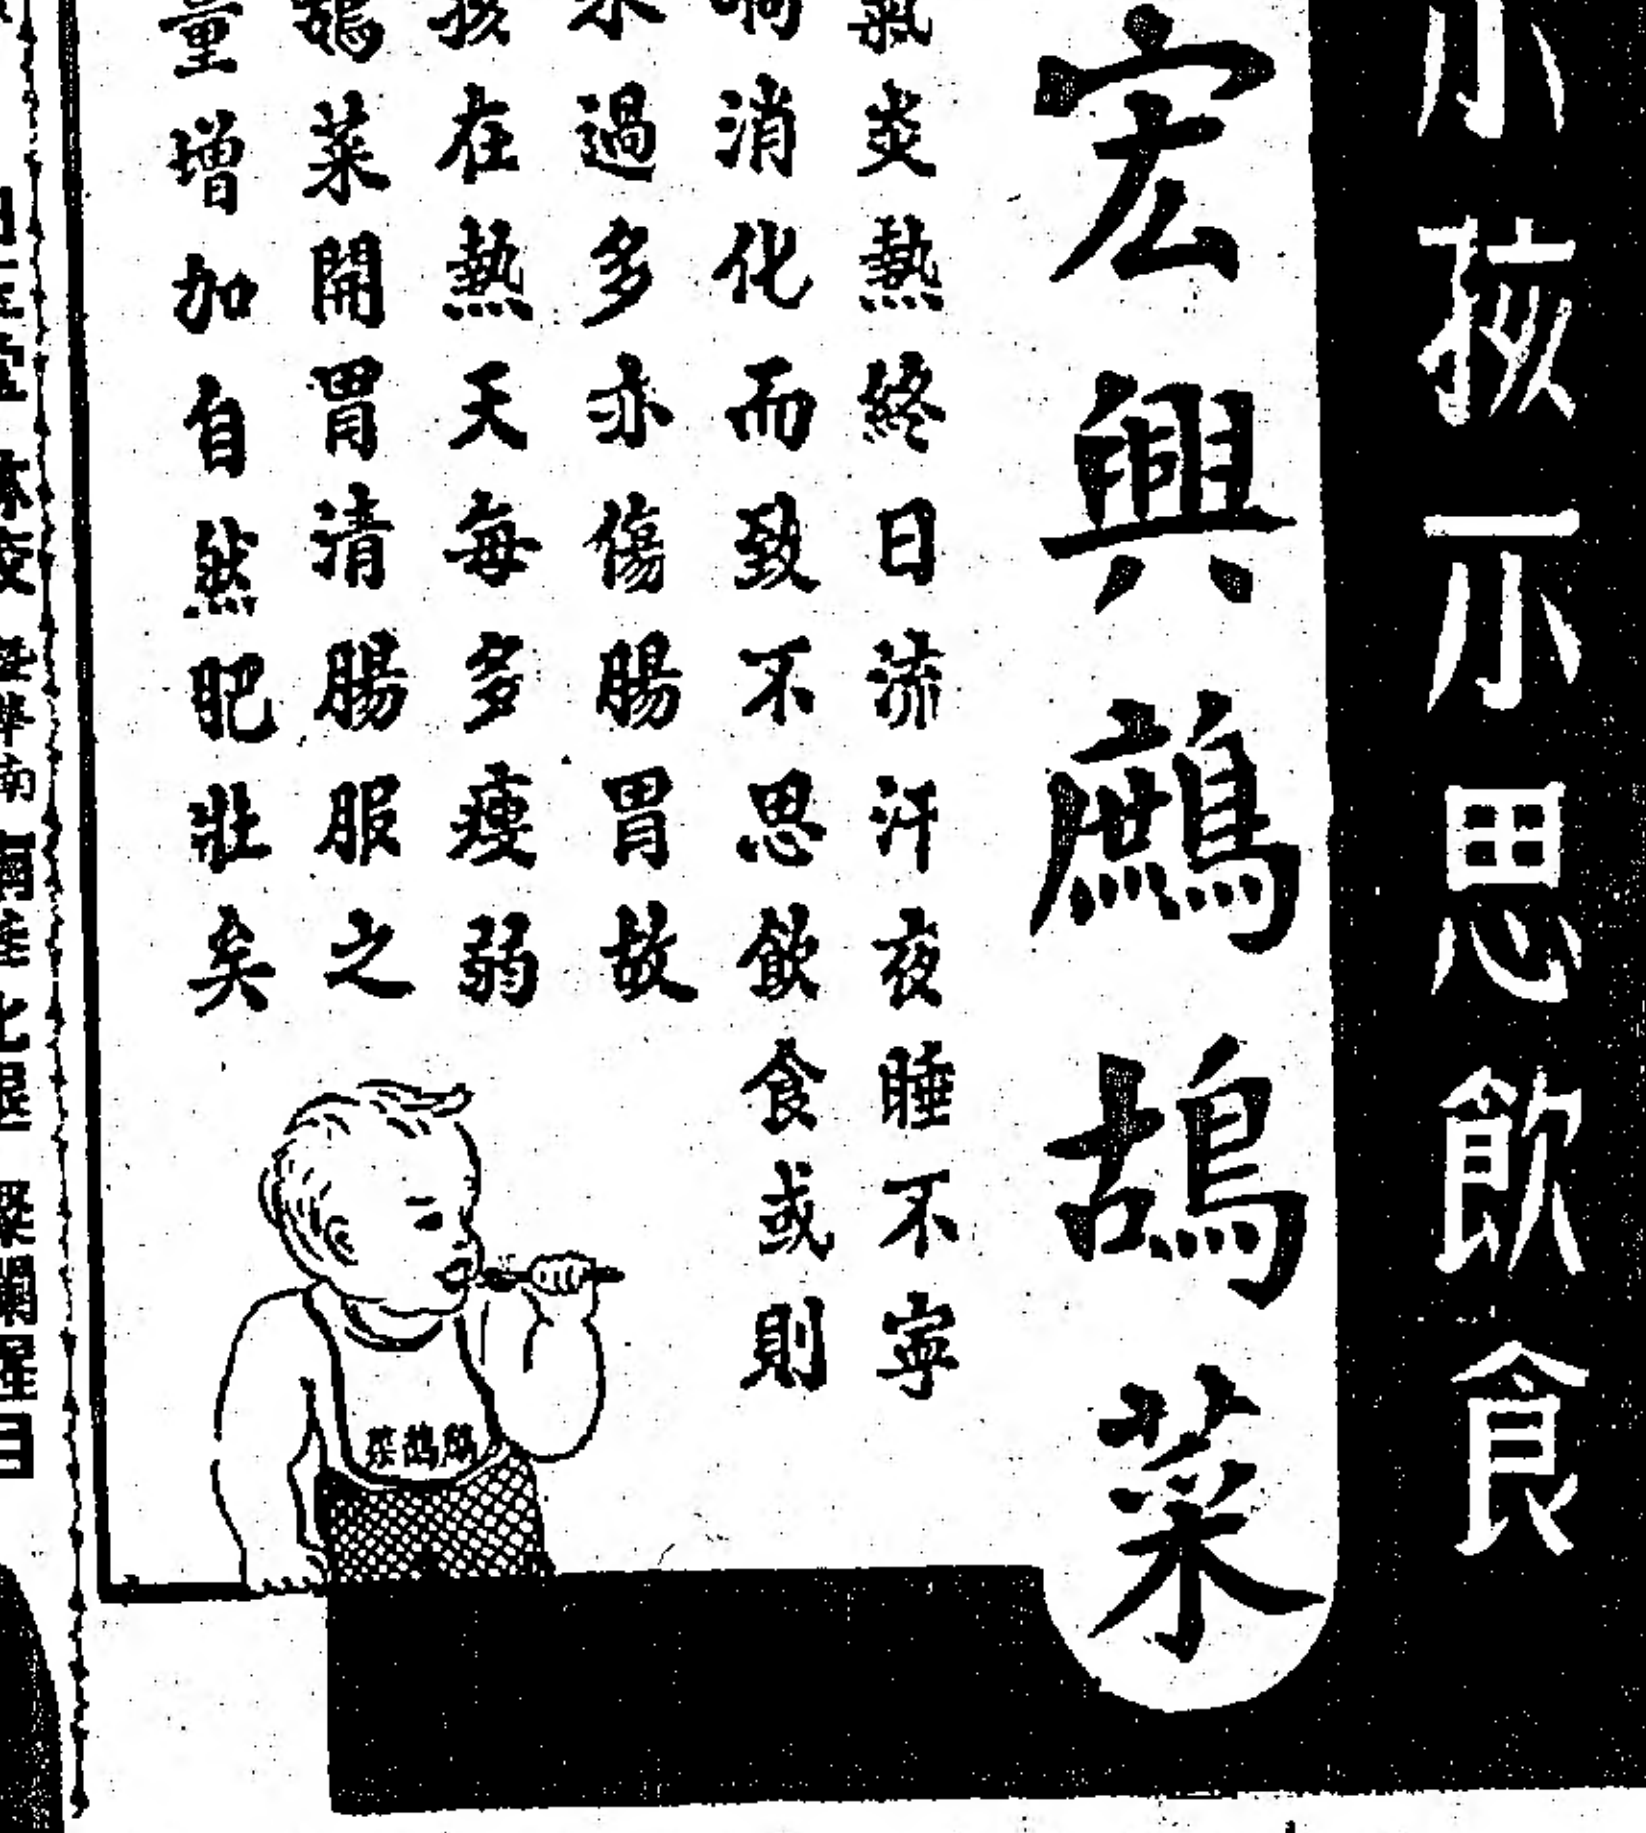 小孩不思飲食
宏興鷓鴣菜
氣炎熱終日流汗夜睡不寧
消化而致不思飲食或則
水過多亦傷腸胃故
孩在熱天每多瘦弱
鴣菜開胃清腸服之
量增加自然肥壯矣
鷓鴣菜